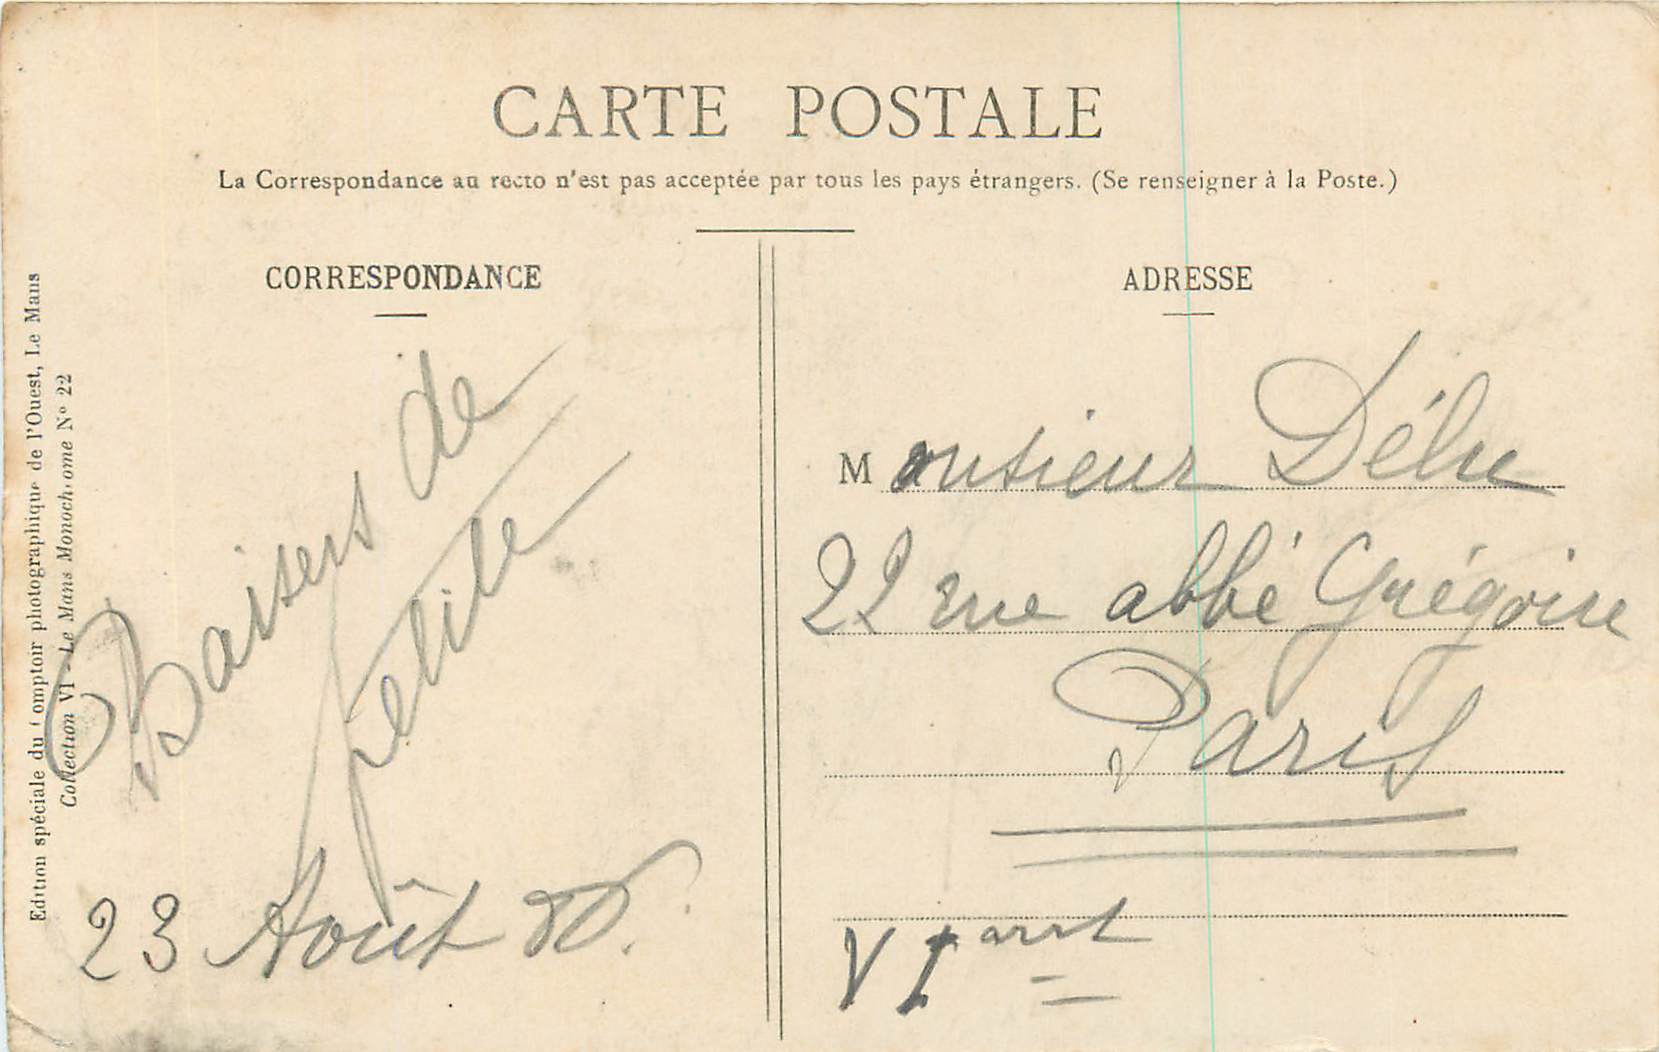 CARTE POSTALE
La Correspondance au recto n'est pas acceptée par tous les pays étrangers. (Se renseigner à la Poste.)
CORRESPONDANCE
Baisers de
petite
23 Août
ADRESSE
Monsieur
22 rue abbé Grégoire
Paris
VI arrt
Edition spéciale du Comptoir photographique de l'Ouest, Le Mans
Collection VI - Le Mans Monochrome N° 22